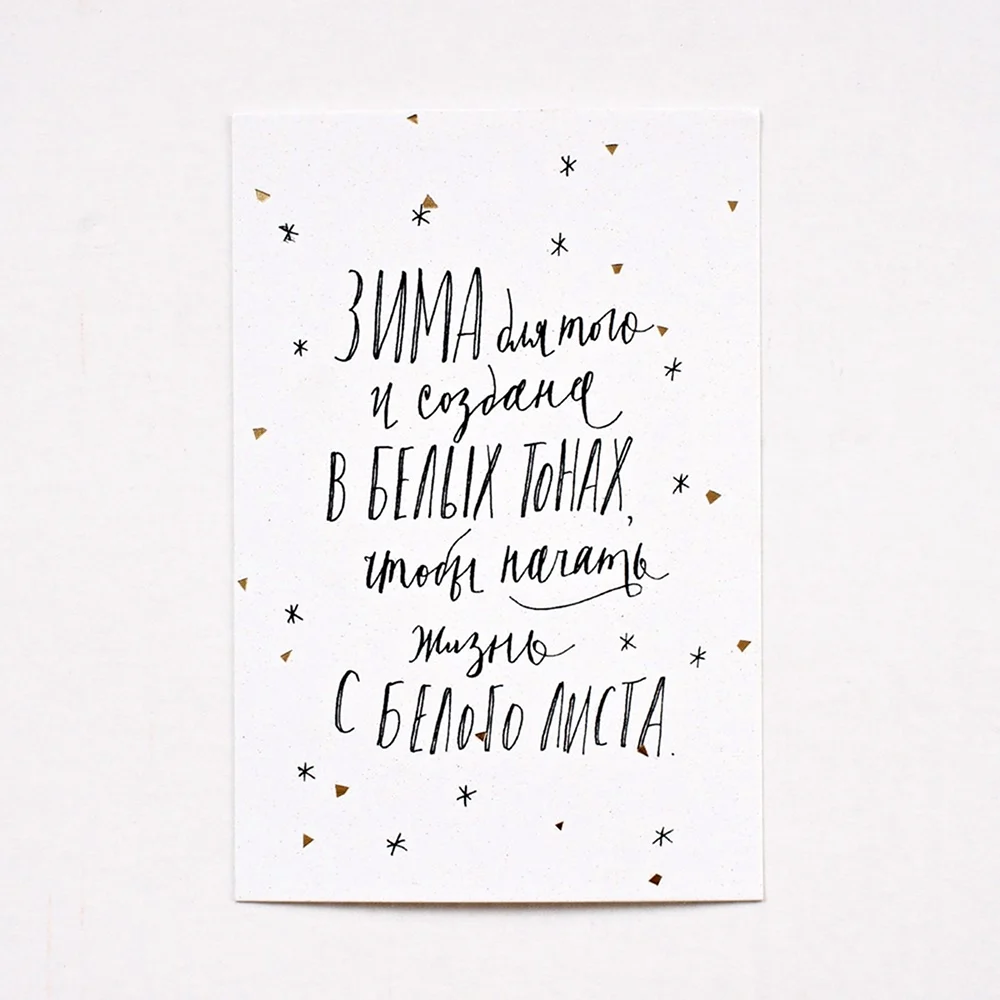 ЗИМА для того
и создана
В БЕЛЫХ ТОНАХ,
чтобы начать
жизнь
С БЕЛОГО ЛИСТА.